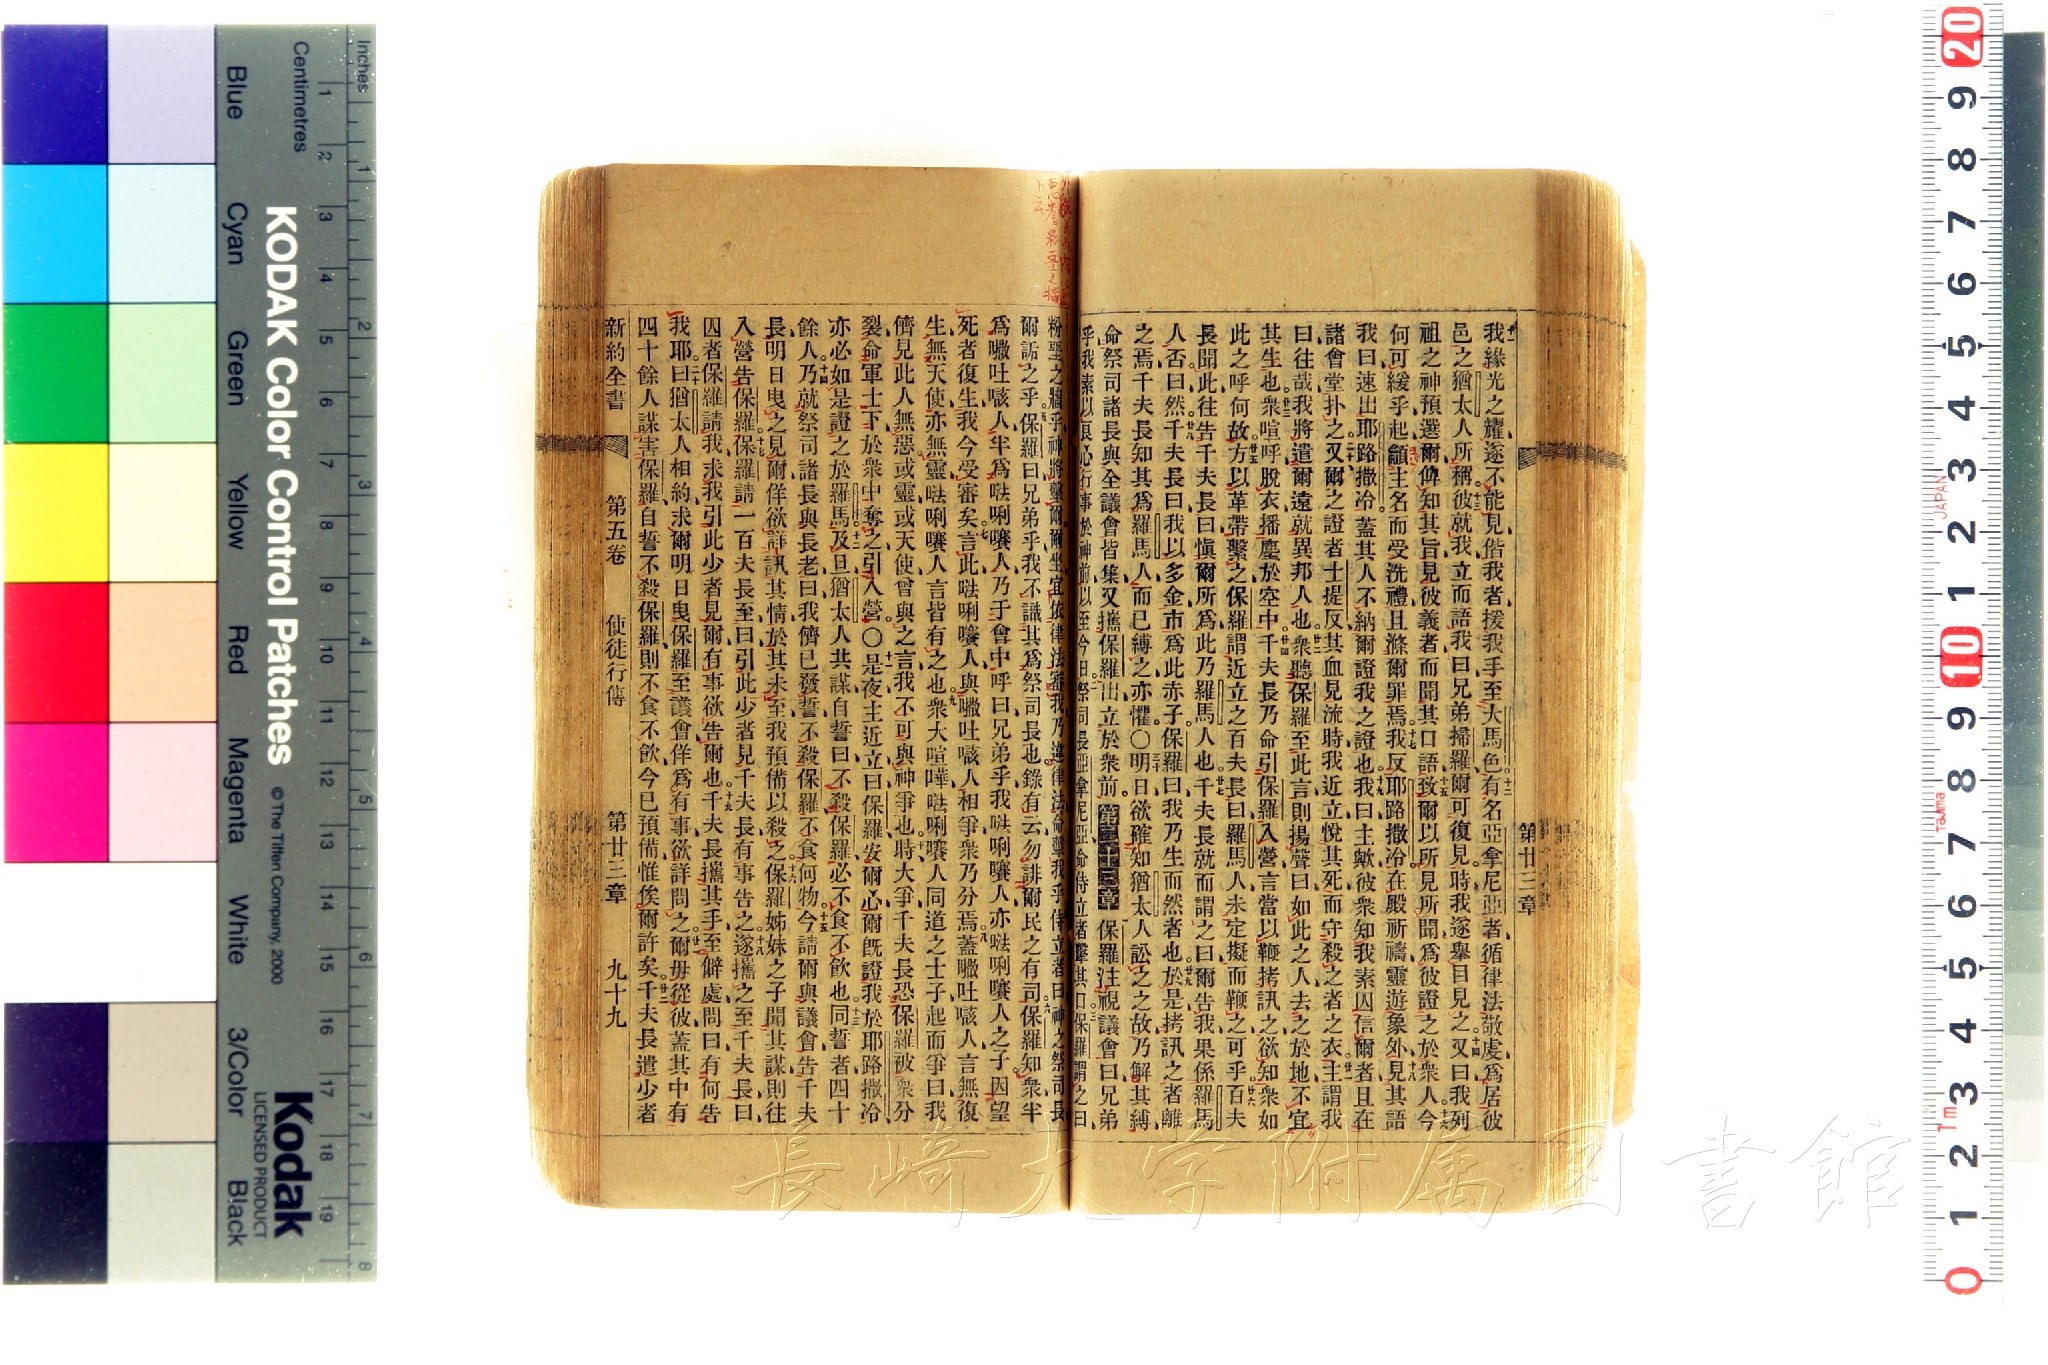 我緣光之耀遂不能見偕我者援我手至大馬色有名亞拿尼亞者循律法敬虔爲居彼
邑之猶太人所稱彼就我立而語我曰兄弟掃羅爾可復見時我遂舉目見之又曰我列
祖之神預選爾俾知其旨見彼義者而聞其口語致爾以所見所聞爲彼證之於衆人今
何可緩乎起籲主名而受洗禮且滌爾罪焉我反耶路撒冷在殿祈禱靈遊象外見其語
我曰速出耶路撒冷蓋其人不納爾證我之證也我曰主歟彼衆知我素囚信爾者且在
諸會堂扑之又爾之證者士提反其血見流時我近立悅其死而守殺之者之衣主謂我
曰往哉我將遣爾遠就異邦人也衆聽保羅至此言則揚聲曰如此之人去之於地不宜
其生也衆喧呼脫衣播塵於空中千夫長乃命引保羅入營言當以鞭拷訊之欲知衆如
此之呼何故方以革帶繫之保羅謂近立之百夫長曰羅馬人未定擬而鞭之可乎百夫
長聞此往告千夫長曰愼爾所爲此乃羅馬人也千夫長就而謂之曰爾告我果係羅馬
人否曰然千夫長曰我以多金市爲此赤子保羅曰我乃生而然者也於是拷訊之者離
之焉千夫長知其爲羅馬人而已縛之亦懼〇明日欲確知猶太人訟之之故乃解其縛
命祭司諸長與全議會皆集又攜保羅出立於衆前第二十三章保羅注視議會曰兄弟
乎我素以良心行事於神前以至今日祭司長亞拿尼亞命侍立者擊其口保羅謂之曰
第廿三章
粉堊之牆乎神將擊爾爾坐宜依律法審我乃違律法命擊我乎侍立者曰神之祭司長
爾詬之乎保羅曰兄弟乎我不識其爲祭司長也錄有云勿誹爾民之有司保羅知衆半
爲㘔吐㗒人半爲㕸唎㘔人乃于會中呼曰兄弟乎我㕸唎㘔人亦㕸唎㘔人之子因望
死者復生我今受審矣言此㕸唎㘔人與㘔吐㗒人相爭衆乃分焉蓋㘔吐㗒人言無復
生無天使亦無靈㕸唎㘔人言皆有之也衆大喧嘩㕸唎㘔人同道之士子起而爭曰我
儕見此人無惡或靈或天使曾與之言我不可與神爭也時大爭千夫長恐保羅被衆分
裂命軍士下於衆中奪之引入營〇是夜主近立曰保羅安爾心爾旣證我於耶路撒冷
亦必如是證之於羅馬及旦猶太人共謀自誓曰不殺保羅必不食不飲也同誓者四十
餘人乃就祭司諸長與長老曰我儕已發誓不殺保羅不食何物今請爾與議會告千夫
長明日曳之見爾佯欲詳訊其情於其未至我預備以殺之保羅姊妹之子聞其謀則往
入營告保羅保羅請一百夫長至曰引此少者見千夫長有事告之遂攜之至千夫長曰
囚者保羅請我求我引此少者見爾有事欲告爾也千夫長攜其手至僻處問曰有何告
我耶曰猶太人相約求爾明日曳保羅至議會佯爲有事欲詳問之爾毋從彼蓋其中有
四十餘人謀害保羅自誓不殺保羅則不食不飲今已預備惟俟爾許矣千夫長遣少者
新約全書 第五卷 使徒行傳 第廿三章 九十九
Inches
Centimetres
KODAK Color Control Patches © The Tiffen Company, 2000
Kodak
LICENSED PRODUCT
Blue Cyan Green Yellow Red Magenta White 3/Color Black
JAPAN
Tajima
長崎大学附属図書館